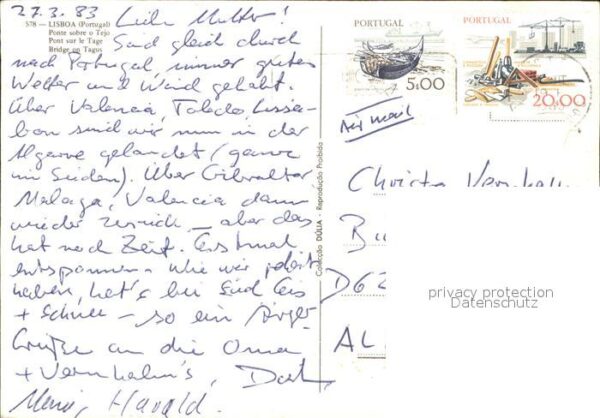 27.3.83 Liebe Mutter!
578 - LISBOA (Portugal)
Ponte sobre o Tejo
Pont sur le Tage
Bridge on Tagus
Sind gleich durch
nach Portugal, immer gutes
Wetter und Wind gehabt.
Über Valencia, Toledo, Lissa-
bon sind wir nun in der
Algarve gelandet (ganz
im Süden). Über Gibraltar
Malaga, Valencia dann
wieder zurück – aber das
hat noch Zeit. Erstmal
entspannen. Wie wir gehört
haben, hat's bei Euch Eis
+ Schnee – so ein Ärger.
Grüße an die Oma
+ Vernhalm's,
Harald.
Colecção DÚLIA - Reprodução Proibida
PORTUGAL
5$00
PORTUGAL
20$00
Air mail
Christa
D62
AL
privacy protection
Datenschutz